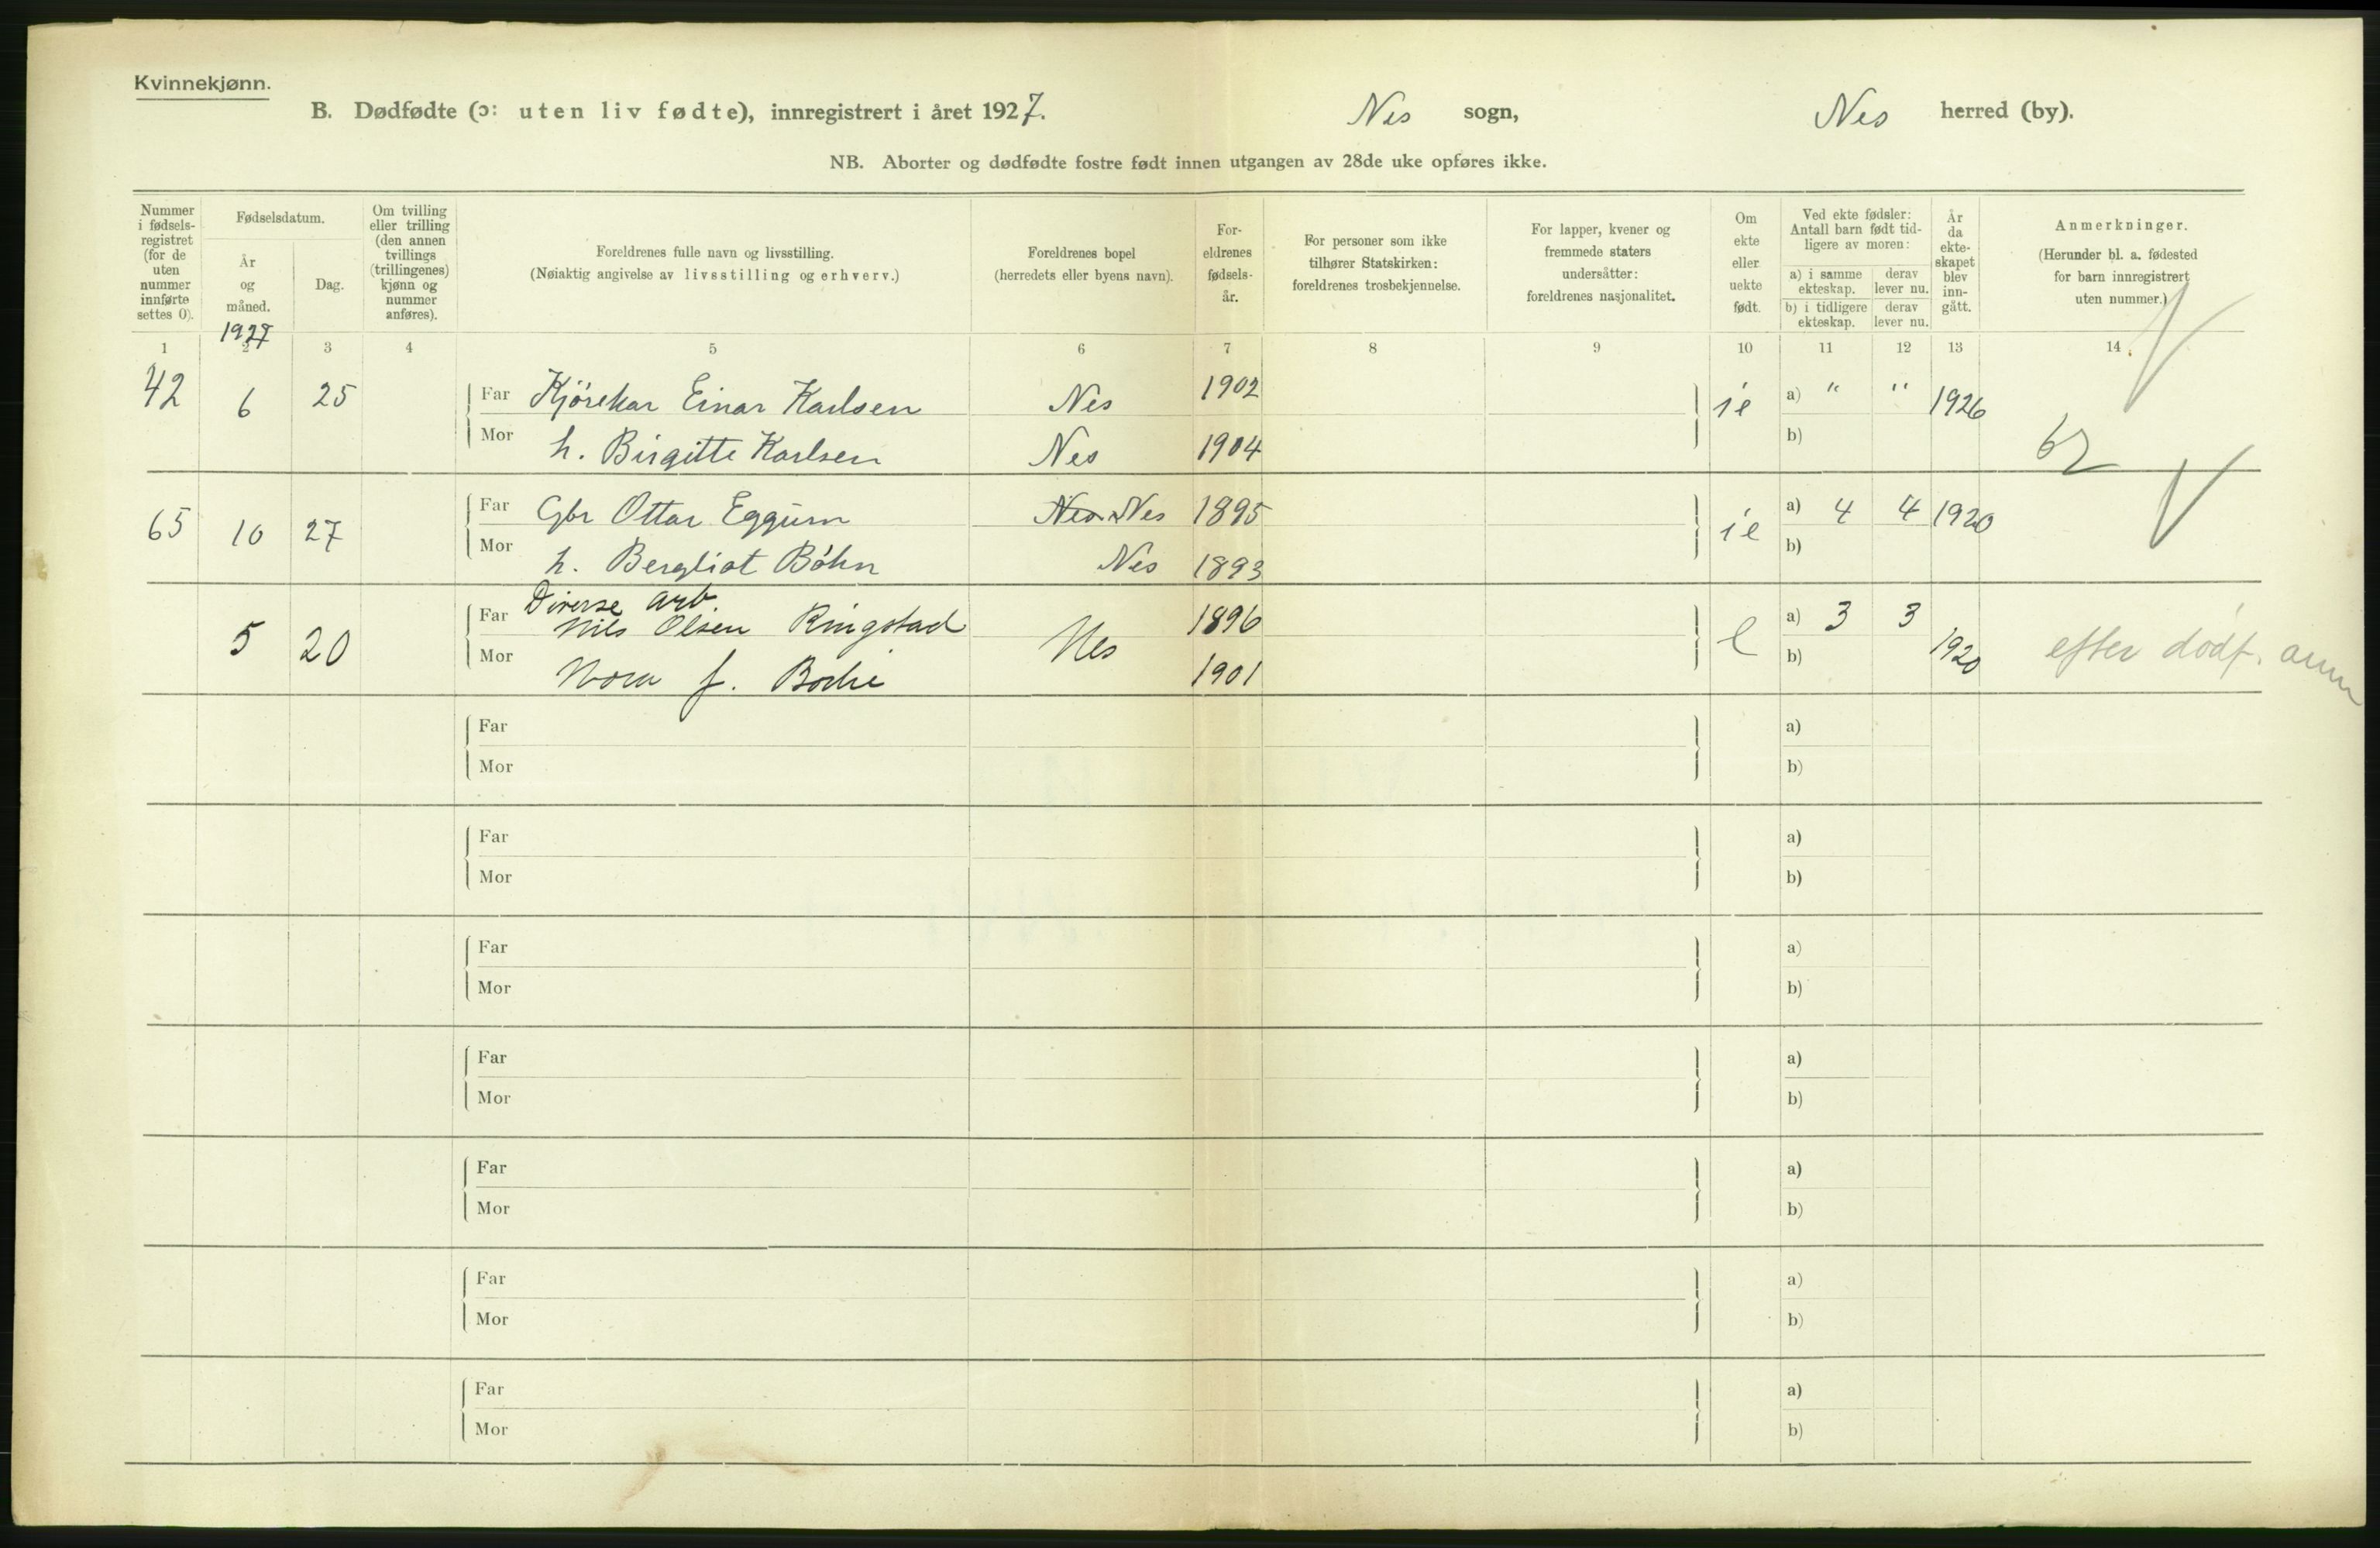 Kvinnekjønn.
B. Dødfødte (ɔ: uten liv fødte), innregistrert i året 1927. Nes sogn, Nes herred (by).
NB. Aborter og dødfødte fostre født innen utgangen av 28de uke opføres ikke.
Nummer
i fødsels-
registret
(for de
uten
nummer
innførte
settes 0).
Fødselsdatum.
År
og
måned.
1927
Dag.
Om tvilling
eller trilling
(den annen
tvillings
(trillingenes)
kjønn og
nummer
anføres).
Foreldrenes fulle navn og livsstilling.
(Nøiaktig angivelse av livsstilling og erhverv.)
Foreldrenes bopel
(herredets eller byens navn).
For-
eldrenes
fødsels-
år.
For personer som ikke
tilhører Statskirken:
foreldrenes trosbekjennelse.
For lapper, kvener og
fremmede staters
undersåtter:
foreldrenes nasjonalitet.
Om
ekte
eller
uekte
født.
Ved ekte fødsler:
Antall barn født tid-
ligere av moren:
a) i samme
ekteskap.
derav
lever nu.
b) i tidligere
ekteskap.
derav
lever nu.
År
da
ekte-
skapet
blev
inn-
gått.
Anmerkninger.
(Herunder bl. a. fødested
for barn innregistrert
uten nummer.)
1 2 3 4 5 6 7 8 9 10 11 12 13 14
42 6 25 Far Kjørekar Einar Karlsen Nes 1902 ie a) " " 1926
Mor h. Birgitte Karlsen Nes 1904 b) 62
65 10 27 Far Gbr Ottar Eggum Nes Nes 1895 ie a) 4 4 1920
Mor h. Bergliot Bøhn Nes 1893 b)
Diverse arb.
5 20 Far Nils Olsen Ringstad Nes 1896 e a) 3 3 1920 efter dødf. anm
Mor Nora f. Bodie 1901 b)
Far a)
Mor b)
Far a)
Mor b)
Far a)
Mor b)
Far a)
Mor b)
Far a)
Mor b)
Far a)
Mor b)
Far a)
Mor b)